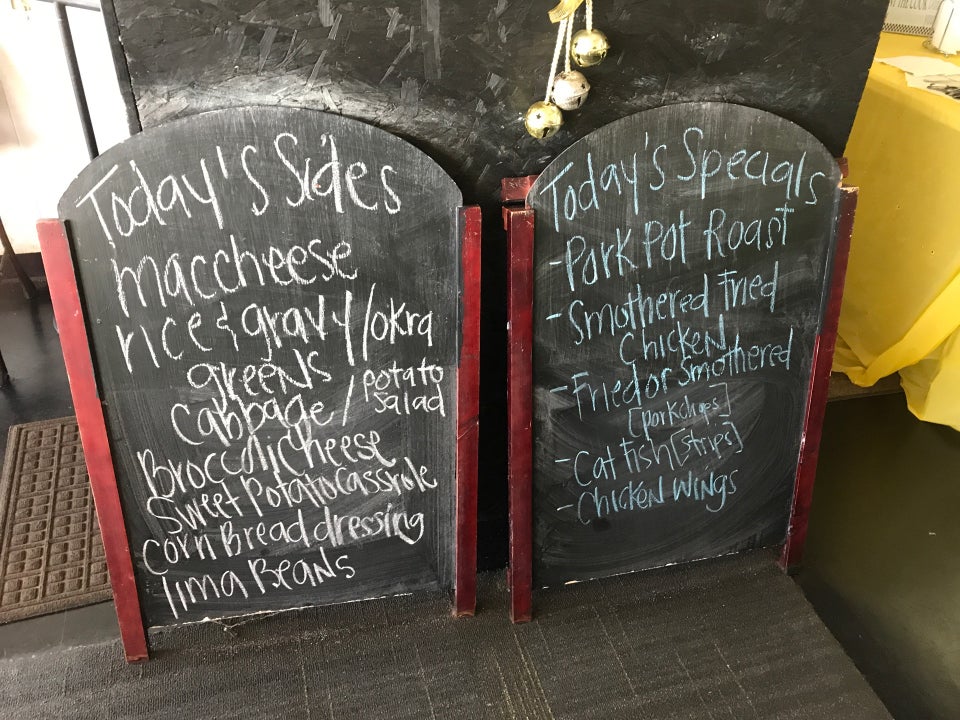 Today's Sides
maccheese
rice & gravy/okra
greens
Cabbage / potato salad
Broccoli Cheese
Sweet Potato Cassrole
Corn Bread dressing
lima Beans
Today's Specials
-Pork Pot Roast
-Smothered Fried
Chicken
-Fried or Smothered
[porkchops]
-Cat fish [strips]
-Chicken wings